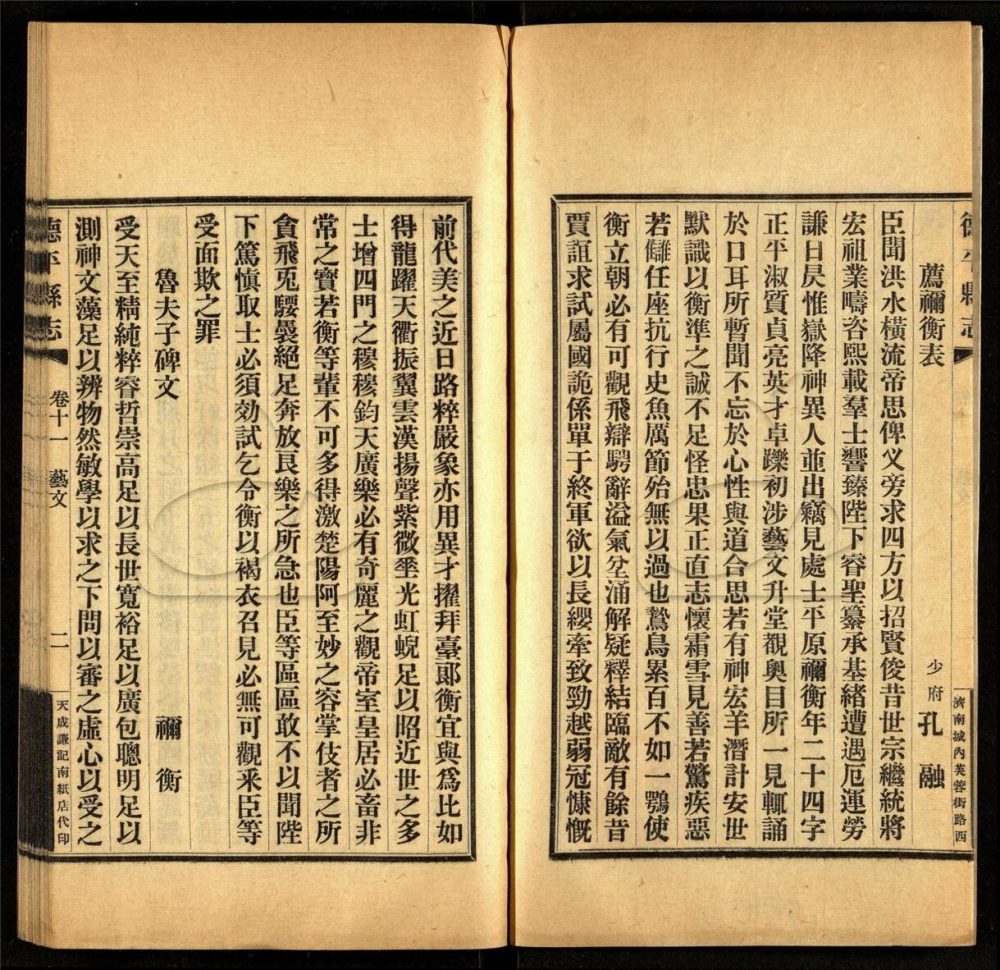 德平縣志
濟南城內芙蓉街路西
薦禰衡表
少府孔融
臣聞洪水橫流帝思俾乂旁求四方以招賢俊昔世宗繼統將
宏祖業疇咨熙載羣士響臻陛下睿聖纂承基緒遭遇厄運勞
謙日昃惟嶽降神異人並出竊見處士平原禰衡年二十四字
正平淑質貞亮英才卓躒初涉藝文升堂覩奧目所一見輒誦
於口耳所暫聞不忘於心性與道合思若有神宏羊潛計安世
默識以衡準之誠不足怪忠果正直志懷霜雪見善若驚疾惡
若讎任座抗行史魚厲節殆無以過也鷙鳥累百不如一鶚使
衡立朝必有可觀飛辯騁辭溢氣坌涌解疑釋結臨敵有餘昔
賈誼求試屬國詭係單于終軍欲以長纓牽致勁越弱冠慷慨
前代美之近日路粹嚴象亦用異才擢拜臺郎衡宜與爲比如
得龍躍天衢振翼雲漢揚聲紫微垂光虹蜺足以昭近世之多
士增四門之穆穆鈞天廣樂必有奇麗之觀帝室皇居必畜非
常之寶若衡等輩不可多得激楚陽阿至妙之容掌伎者之所
貪飛兎騕褭絕足奔放良樂之所急也臣等區區敢不以聞陛
下篤慎取士必須効試乞令衡以褐衣召見必無可觀采臣等
受面欺之罪
魯夫子碑文
禰衡
受天至精純粹睿哲崇高足以長世寬裕足以廣包聰明足以
測神文藻足以辨物然敏學以求之下問以審之虛心以受之
德平縣志
卷十一
藝文
二
天成謙記南紙店代印